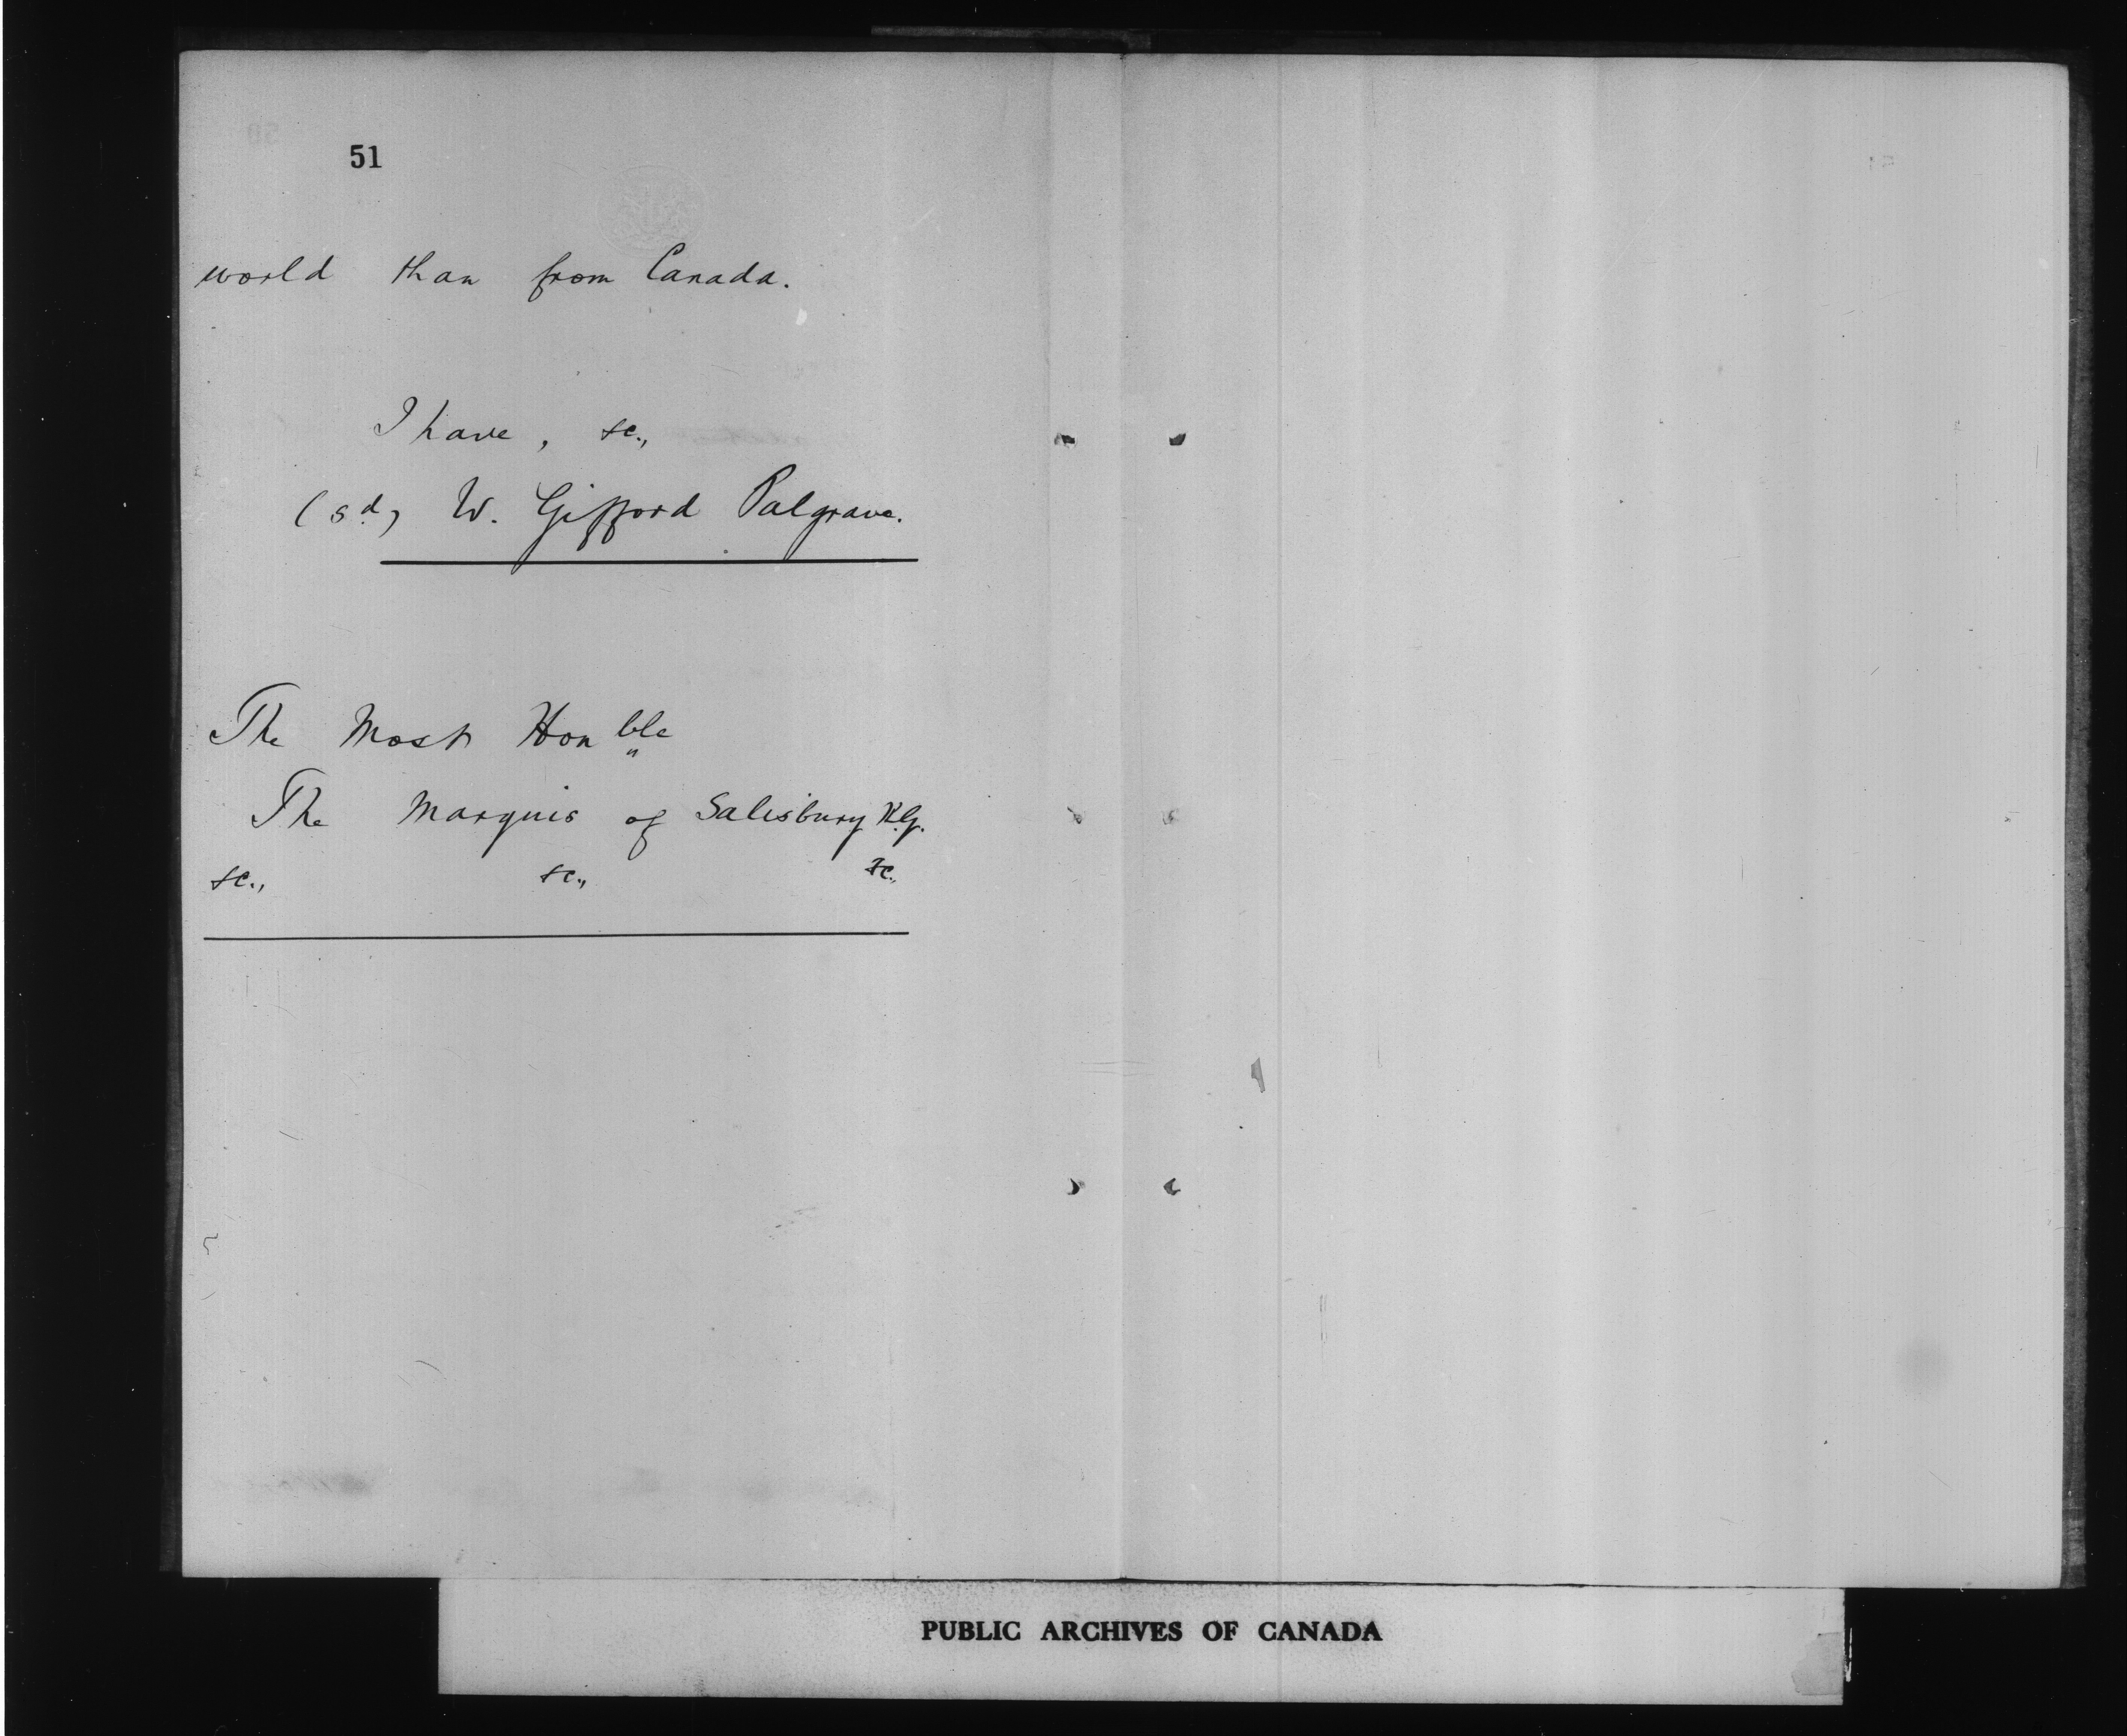 51
world than from Canada.
I have, &c.,
(sd) W. Gifford Palgrave.
The Most Honble
The Marquis of Salisbury K.G.
&c., &c., &c.,
PUBLIC ARCHIVES OF CANADA